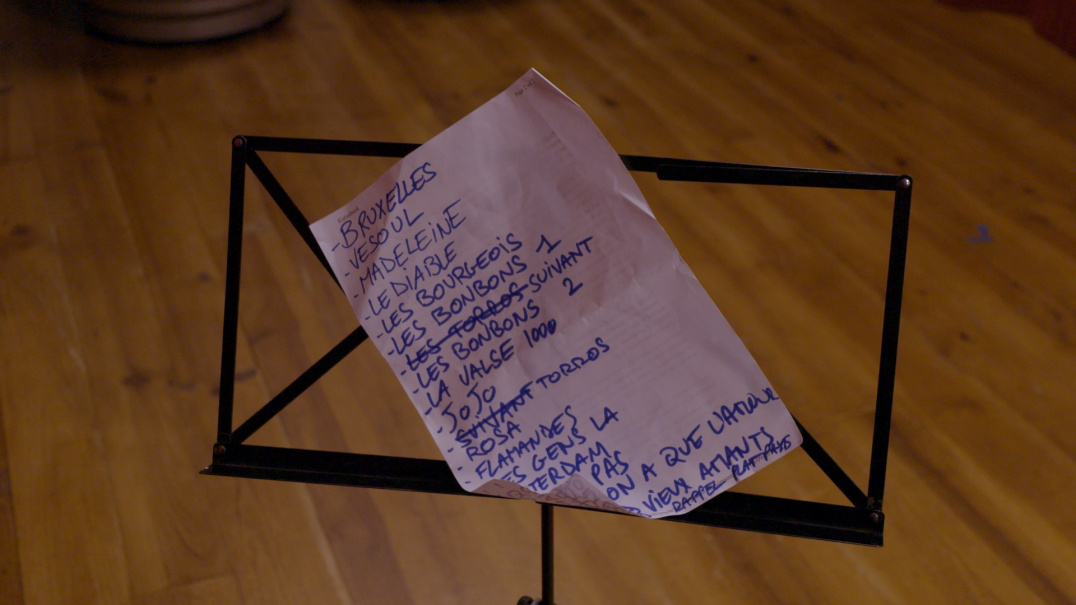 -BRUXELLES
-VESOUL
-MADELEINE
-LE DIABLE
-LES BOURGEOIS
-LES BONBONS 1
-LES TORROS SUIVANT
-LES BONBONS 2
-LA VALSE 1000
-JOJO
-SUIVANT TORROS
-ROSA
-FLAMANDES
-ES GENS LA
TERDAM
PAS
ON A QUE L'AMOUR
VIEUX AMANTS
RAPPEL PLAT PAYS